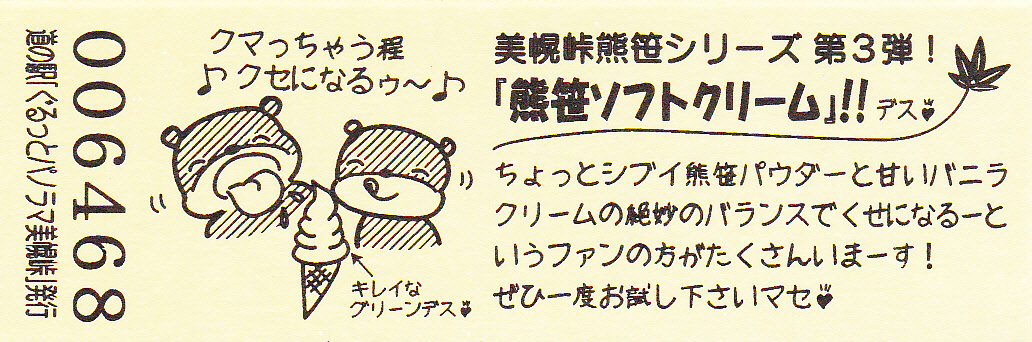 006468
道の駅「ぐるっとパノラマ美幌峠」発行
クマっちゃう程
♪クセになるゥ〜♪
キレイな
グリーンデス♥
美幌峠熊笹シリーズ 第3弾!
「熊笹ソフトクリーム」!! デス♥
ちょっとシブイ熊笹パウダーと甘いバニラ
クリームの絶妙のバランスでくせになるーと
いうファンの方がたくさんいまーす!
ぜひ一度お試し下さいマセ♥